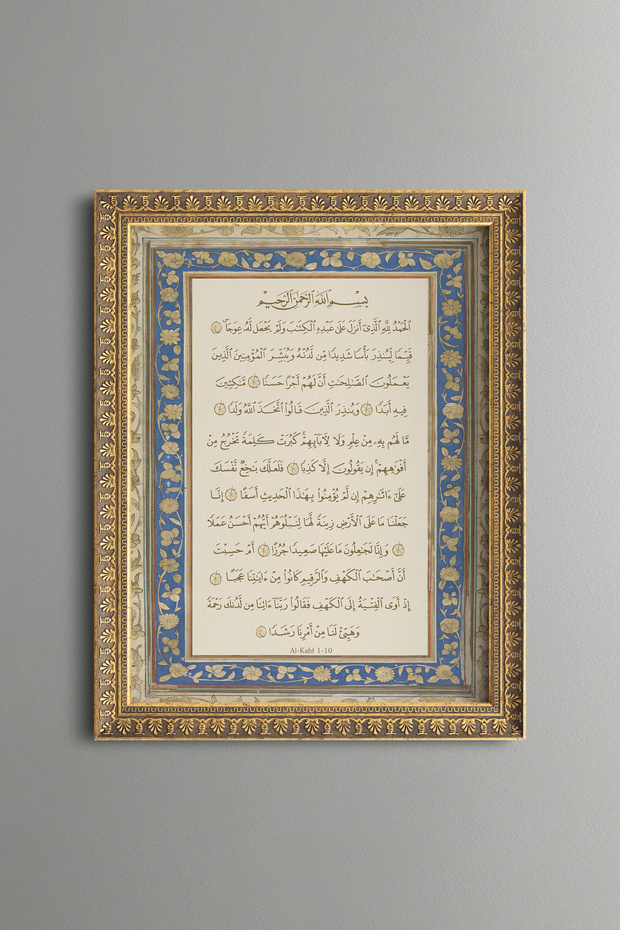 بِسْمِ ٱللَّهِ ٱلرَّحْمَٰنِ ٱلرَّحِيمِ
ٱلْحَمْدُ لِلَّهِ ٱلَّذِىٓ أَنزَلَ عَلَىٰ عَبْدِهِ ٱلْكِتَٰبَ وَلَمْ يَجْعَل لَّهُۥ عِوَجَا ۜ ۝
قَيِّمًا لِّيُنذِرَ بَأْسًا شَدِيدًا مِّن لَّدُنْهُ وَيُبَشِّرَ ٱلْمُؤْمِنِينَ ٱلَّذِينَ
يَعْمَلُونَ ٱلصَّٰلِحَٰتِ أَنَّ لَهُمْ أَجْرًا حَسَنًا ۝ مَّٰكِثِينَ
فِيهِ أَبَدًا ۝ وَيُنذِرَ ٱلَّذِينَ قَالُوا۟ ٱتَّخَذَ ٱللَّهُ وَلَدًا ۝
مَّا لَهُم بِهِۦ مِنْ عِلْمٍ وَلَا لِـَٔابَآئِهِمْ ۚ كَبُرَتْ كَلِمَةً تَخْرُجُ مِنْ
أَفْوَٰهِهِمْ ۚ إِن يَقُولُونَ إِلَّا كَذِبًا ۝ فَلَعَلَّكَ بَٰخِعٌ نَّفْسَكَ
عَلَىٰٓ ءَاثَٰرِهِمْ إِن لَّمْ يُؤْمِنُوا۟ بِهَٰذَا ٱلْحَدِيثِ أَسَفًا ۝ إِنَّا
جَعَلْنَا مَا عَلَى ٱلْأَرْضِ زِينَةً لَّهَا لِنَبْلُوَهُمْ أَيُّهُمْ أَحْسَنُ عَمَلًا
۝ وَإِنَّا لَجَٰعِلُونَ مَا عَلَيْهَا صَعِيدًا جُرُزًا ۝ أَمْ حَسِبْتَ
أَنَّ أَصْحَٰبَ ٱلْكَهْفِ وَٱلرَّقِيمِ كَانُوا۟ مِنْ ءَايَٰتِنَا عَجَبًا ۝
إِذْ أَوَى ٱلْفِتْيَةُ إِلَى ٱلْكَهْفِ فَقَالُوا۟ رَبَّنَآ ءَاتِنَا مِن لَّدُنكَ رَحْمَةً
وَهَيِّئْ لَنَا مِنْ أَمْرِنَا رَشَدًا ۝
Al-Kahf 1-10